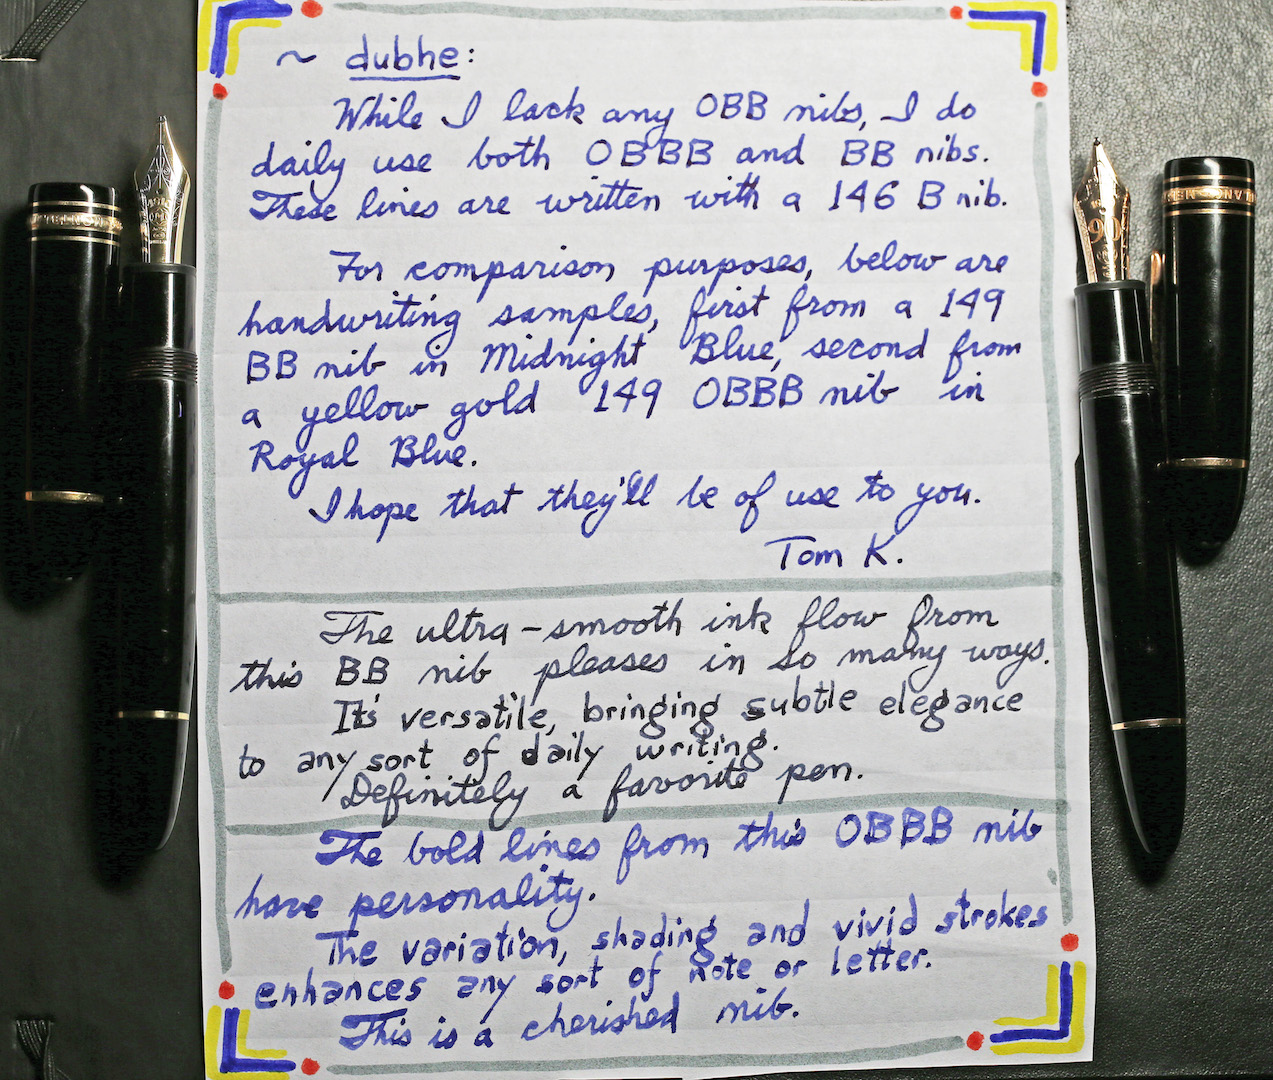 ~ dubhe:
While I lack any OBB nibs, I do
daily use both OBBB and BB nibs.
These lines are written with a 146 B nib.
For comparison purposes, below are
handwriting samples, first from a 149
BB nib in Midnight Blue, second from
a yellow gold 149 OBBB nib in
Royal Blue.
I hope that they'll be of use to you.
Tom K.
The ultra-smooth ink flow from
this BB nib pleases in so many ways.
It's versatile, bringing subtle elegance
to any sort of daily writing.
Definitely a favorite pen.
The bold lines from this OBBB nib
have personality.
The variation, shading and vivid strokes
enhances any sort of note or letter.
This is a cherished nib.
90